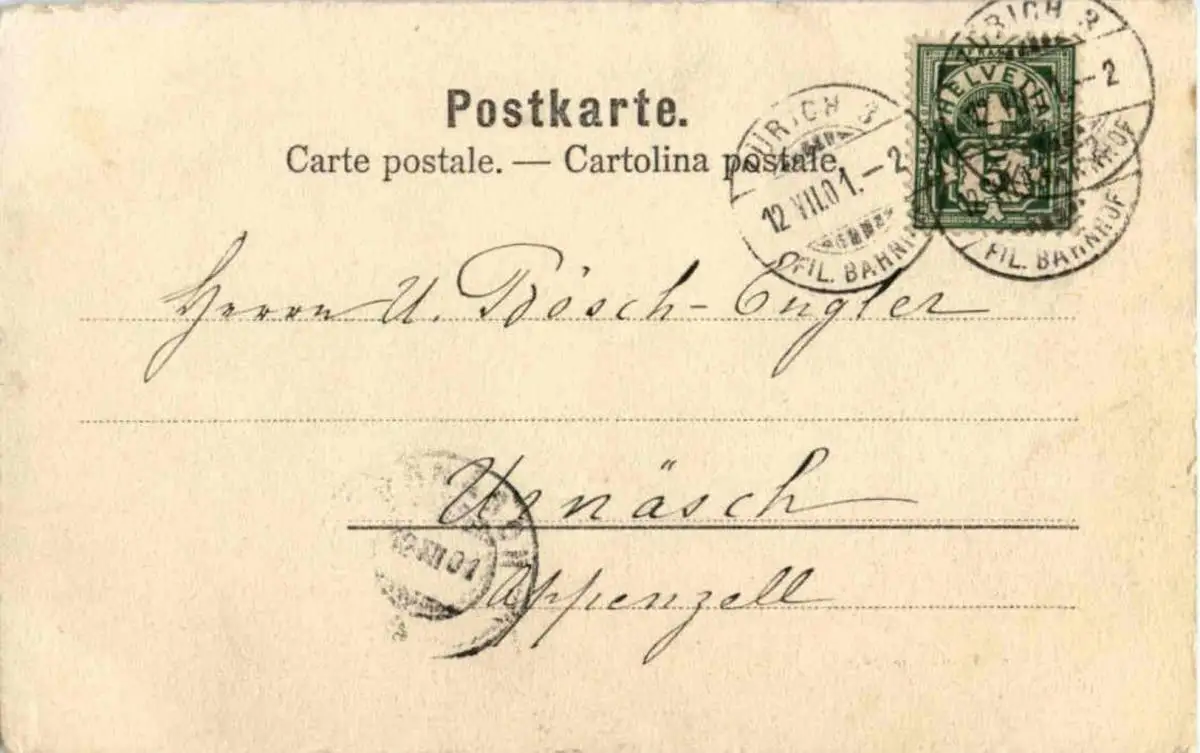 Postkarte.
Carte postale. — Cartolina postale.
ZÜRICH 3
12 VII.01.–2
FIL. BAHNHOF
ZÜRICH 3
–2
BAHNHOF
HELVETIA
5
FIL. BAHNHOF
Herrn U. Bösch-Engler
Urnäsch
Appenzell